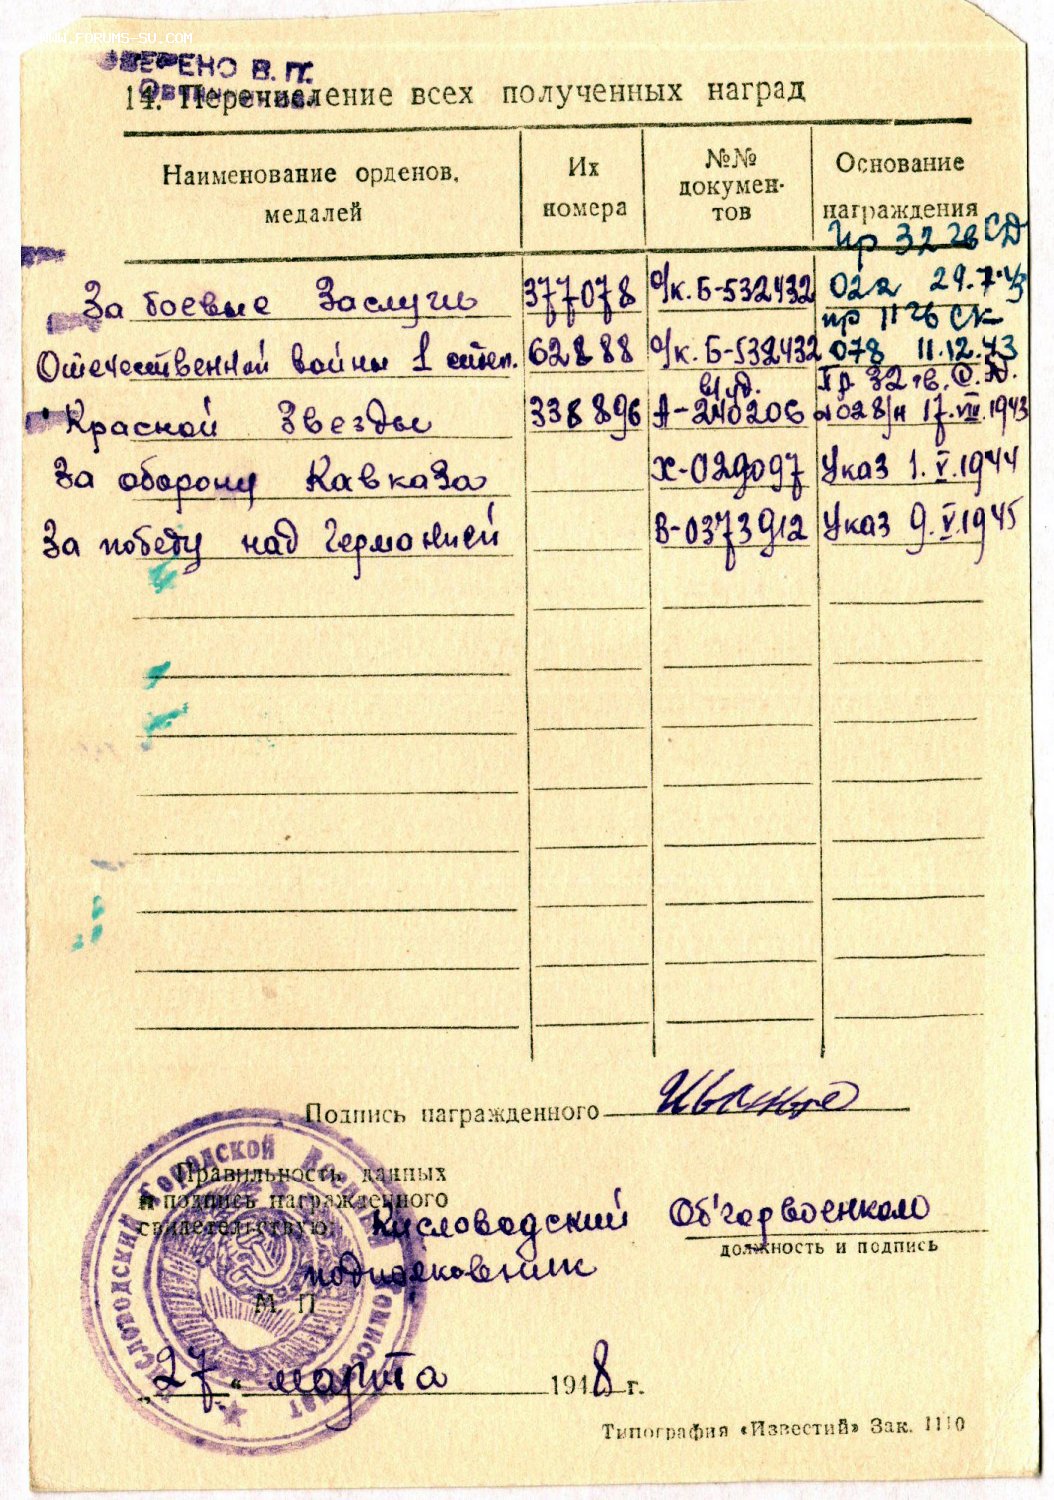 .FORUMS-SU.COM
ВЕРЕНО В. П.
14. Перечисление всех полученных наград
Наименование орденов, медалей
Их номера
№№ докумен-тов
Основание награждения
пр 32 гв СД
За боевые Заслуги 377078 о/к. Б-532432 022 29.7.43
пр 11 гв СК
Отечественной войны 1 степ. 62888 о/к. Б-532432 078 11.12.43
вр уд. Пр 32 гв. С. Д.
Красной Звезды 338896 А-240206 №028/н 17.VIII.1943
За оборону Кавказа Х-029097 Указ 1.V.1944
За победу над Германией В-0373912 Указ 9.V.1945
Подпись награжденного
Правильность данных
и подпись награжденного
свидетельствую: Кисловодский Об'горвоенком
должность и подпись
подполковник
М. П.
„27“ марта 1948 г.
Кисловодский Городской Военный Комиссариат
Типография «Известий» Зак. 1110